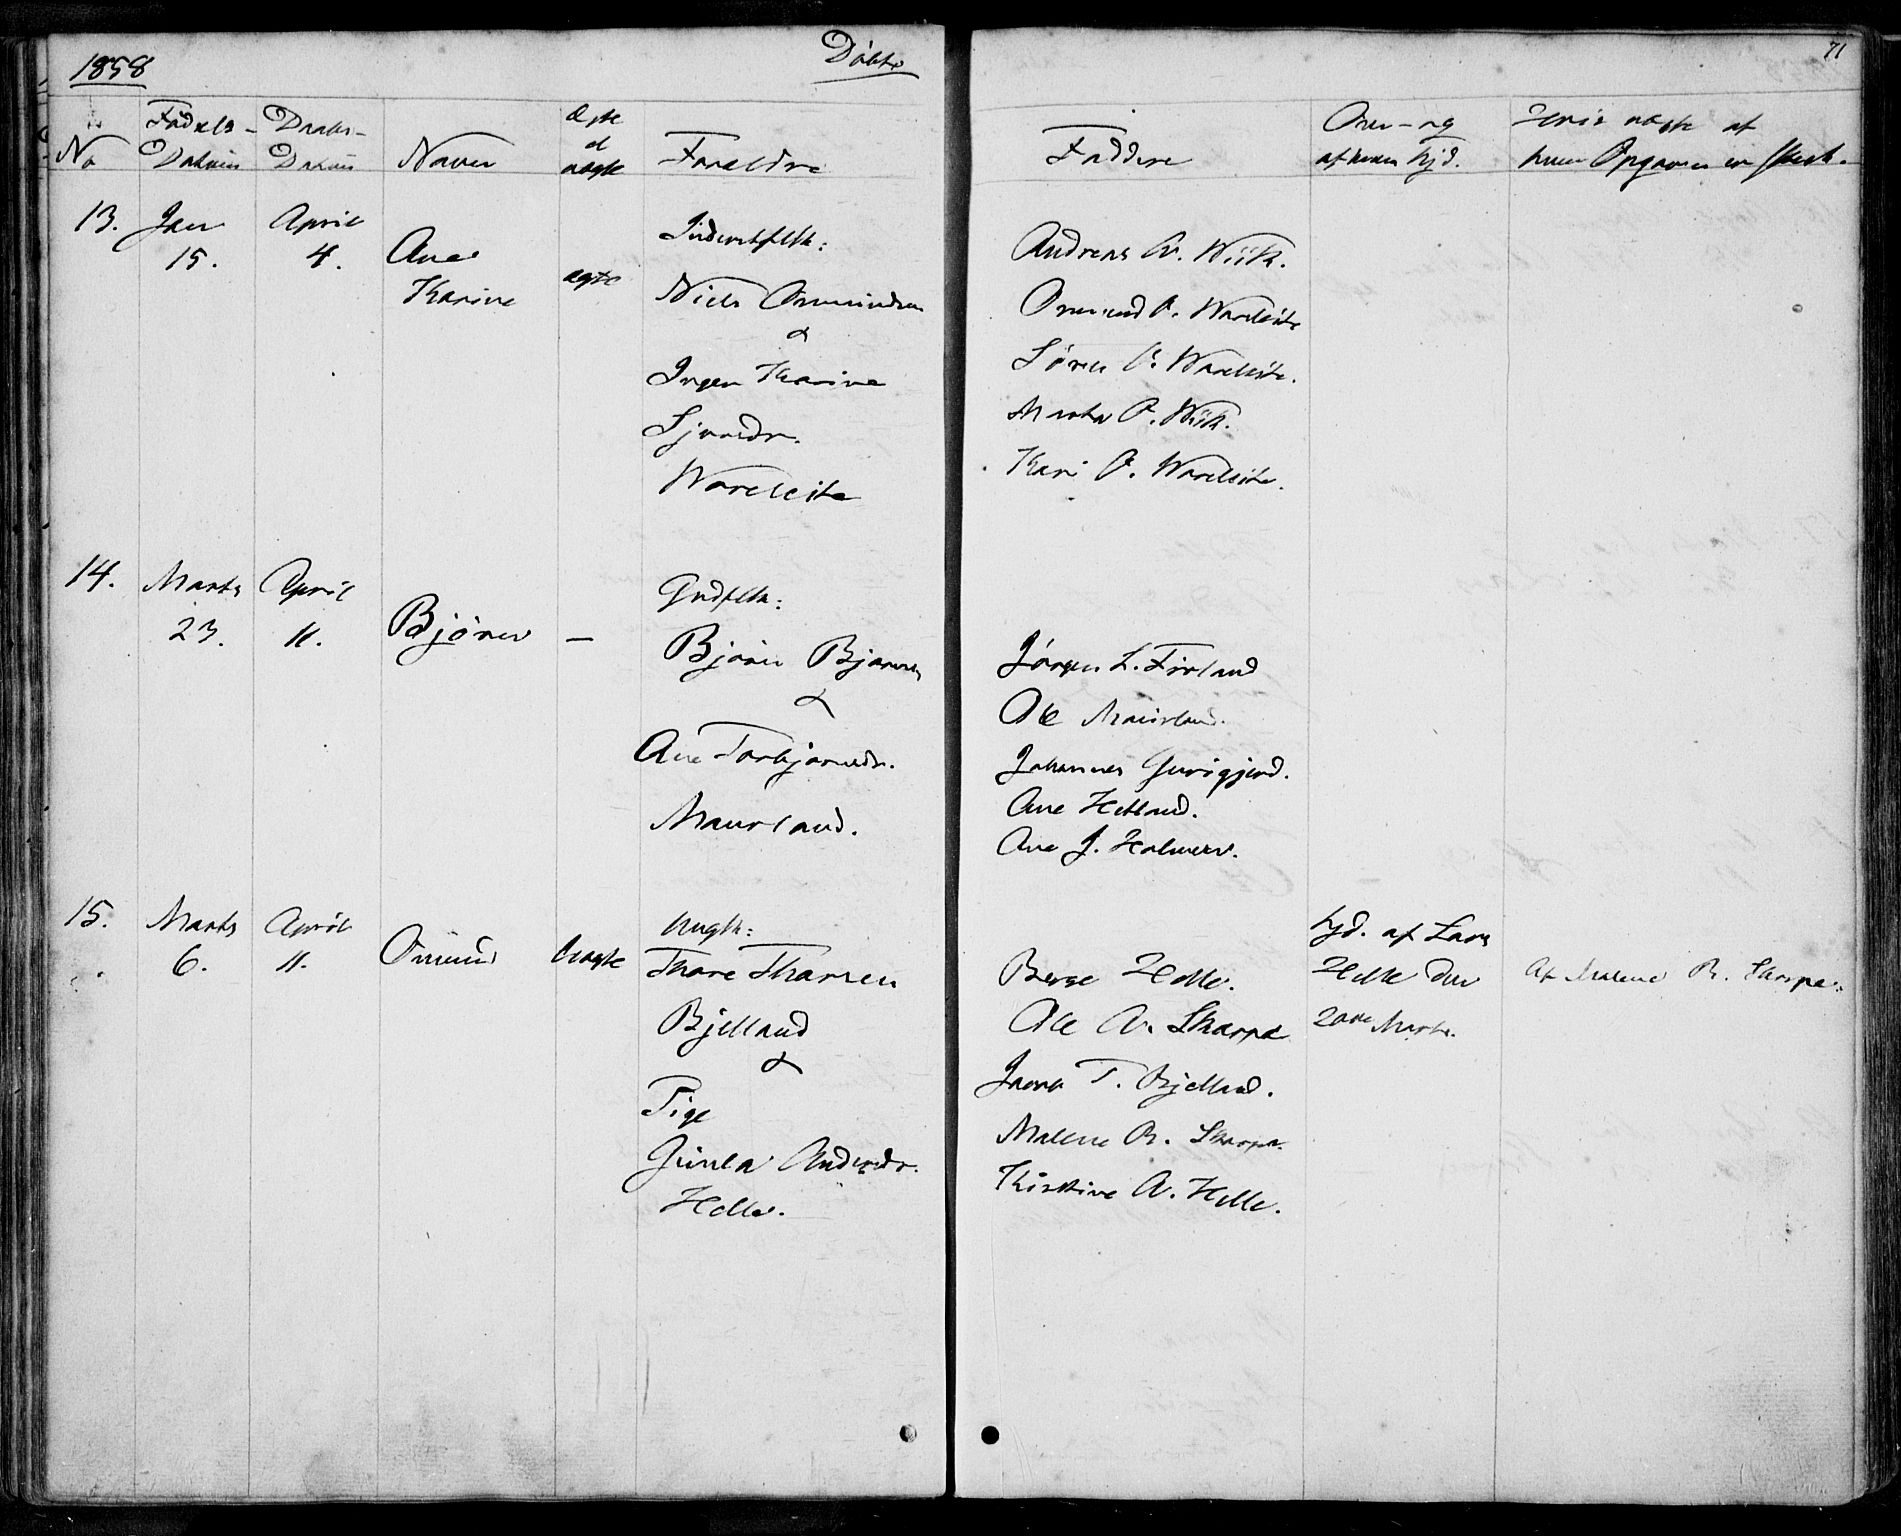 1858
Døbte
71
No
Fødsels-
Datum
Daabs-
Datum
Navn
Ægte
el
uægte
Forældre
Faddere
og
af hvem hjd.
Hvis uægte af
hvem Opgaven er skeet.
13. Jan April
15. 4.
Ane
Karine
ægte
Inderstflk:
Niels Osmundsen
&
Inger Karine
Sjursdr.
Wareleite
Andreas A. Wiik.
Osmund O. Wareleite
Sören O. Wareleite.
Marta O. Wiik.
Kari O. Wareleite.
14. Marts April
23. 11.
Bjørn
—
Grdflk:
Bjørn Bjørnsen
&
Ane Torbjørnsdr.
Maurland.
Jørgen L. Førland
Ole Maurland.
Johannes
Ane Hetland.
Ane J. Holmen.
15. Marts April
6. 11.
Osmund
Uægte
Ungk:
Thore Thorsen
Bjelland
&
Pige
Gunla Andersdr.
Helle.
Berge Helle.
Ole A. Skarpe
Jacob T. Bjelland.
Malene B. Skarpe
Kirstine A. Helle.
hjd. af Lars
Helle den
20de Marts.
Af Malene B. Skarpe.